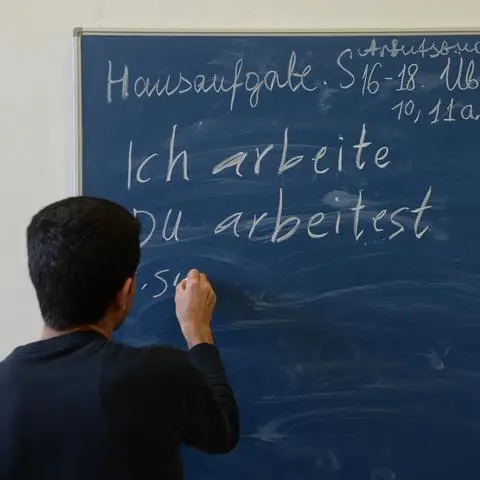 Arbeitsbuch
Hausaufgabe. S 16-18. Üb
10, 11a
Ich arbeite
Du arbeitest